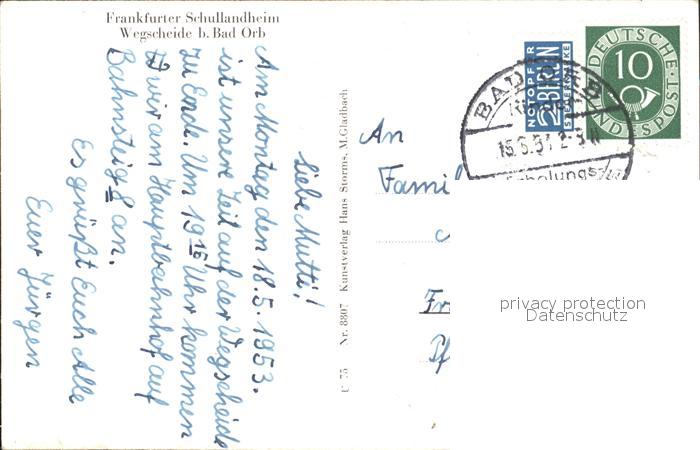 Frankfurter Schullandheim
Wegscheide b. Bad Orb
Liebe Mutti!
Am Montag den 18.5.1953.
ist unsere Zeit auf der Wegscheide
zu Ende. Um 19 15 Uhr kommen
wir am Hauptbahnhof auf
Bahnsteig 8 an.
Es grüßt Euch Alle
Euer Jürgen
C 75 Nr. 8807 Kunstverlag Hans Storms, M.Gladbach
An
Famil
Fr
NOTOPFER
2 BERLIN
STEUERMARKE
DEUTSCHE
10
BUNDESPOST
BAD ORB
privacy protection
Datenschutz